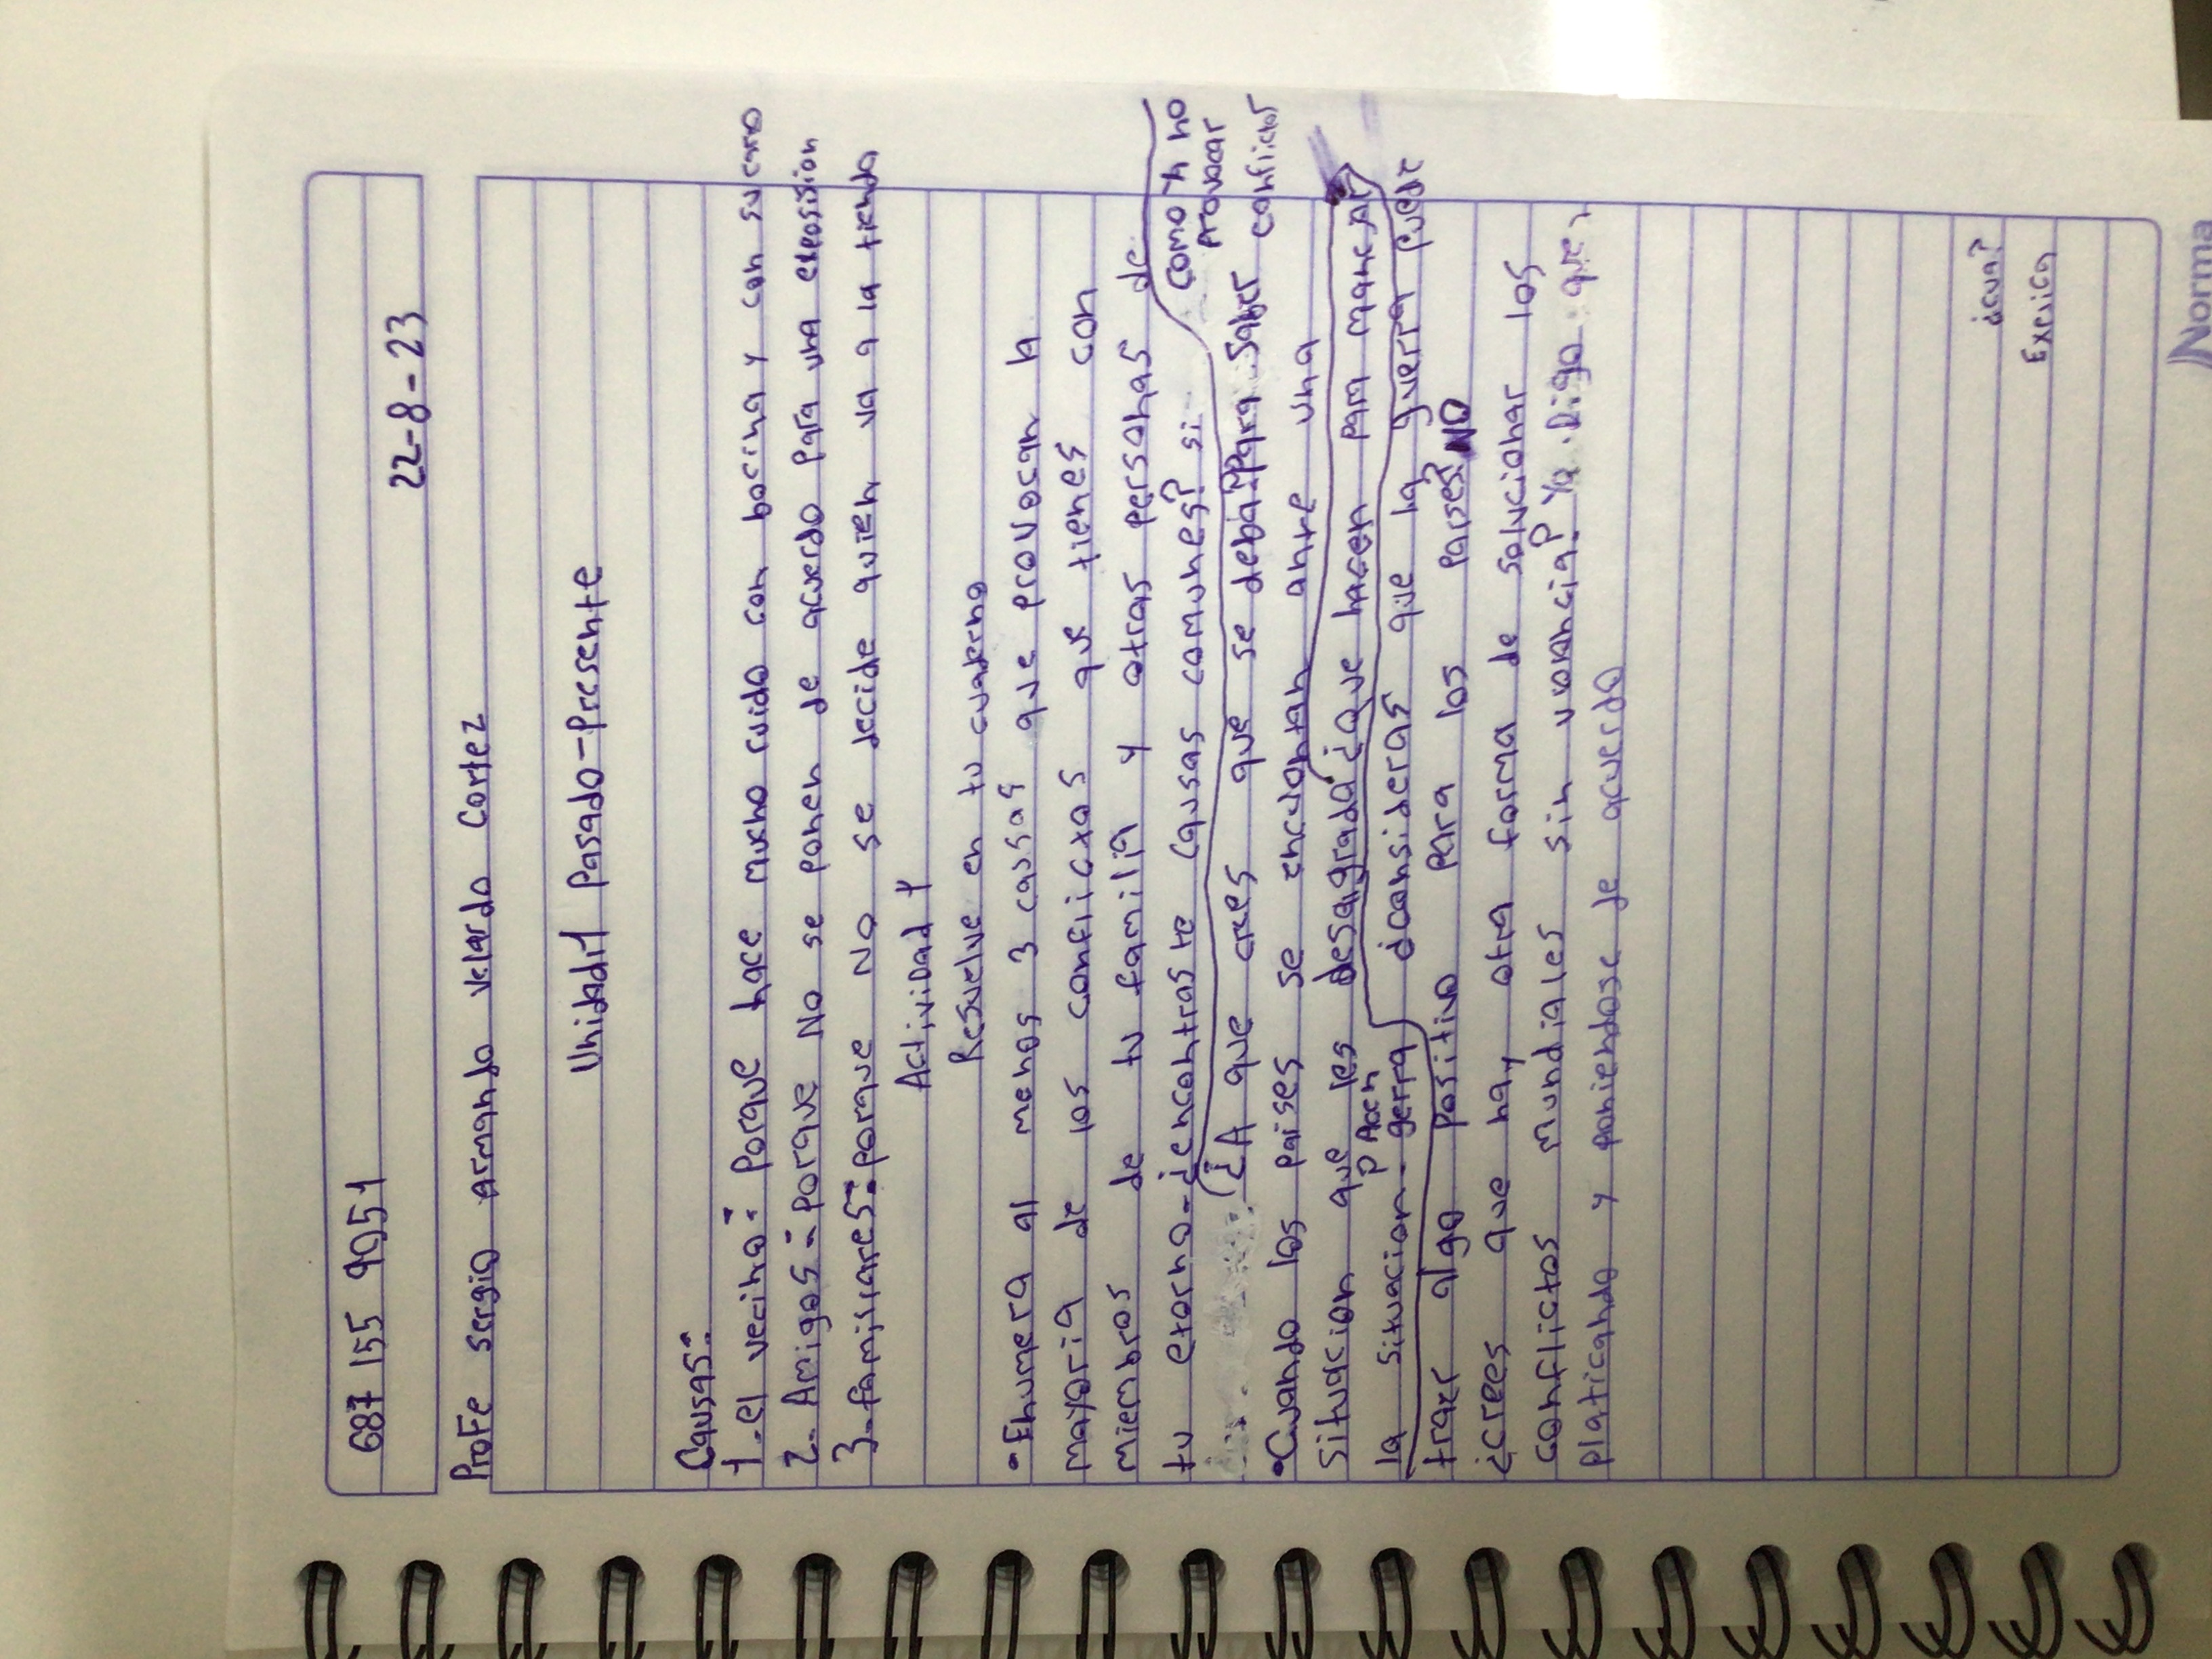 687 155 9051
22-8-23
Profe sergio armando velardo Cortez
Unidad 1 Pasado-Presente
Causas:
1-el vecino: Porque hace mucho ruido con bocina y con su carro
2-Amigos: Porque No se ponen de acuerdo Para una exposision
3-familiares: porque No se decide quien va a la tienda
Actividad 1
Resuelve en tu cuaderno
•Enumera al menos 3 causas que provocan la
mayoria de los conflictos que tienes con
miembros de tu familia y otras personas de
tu etorno-¿encontraste causas comunes? si
¿A que crees que se deba? Para saber como y no provocar conflictos
•Cuando los paises se encuentan ante una
situacion que les desagrada ¿que hacen para manejar
la situacion- gerra ¿consideras que la guerra puede
traer algo positivo para los paises? NO
¿crees que hay otra forma de solucionar los
conflictos mundiales sin violencia? Ya. Digo que
platicando y poniendose de acuerdo
¿cual?
Explica
Norma